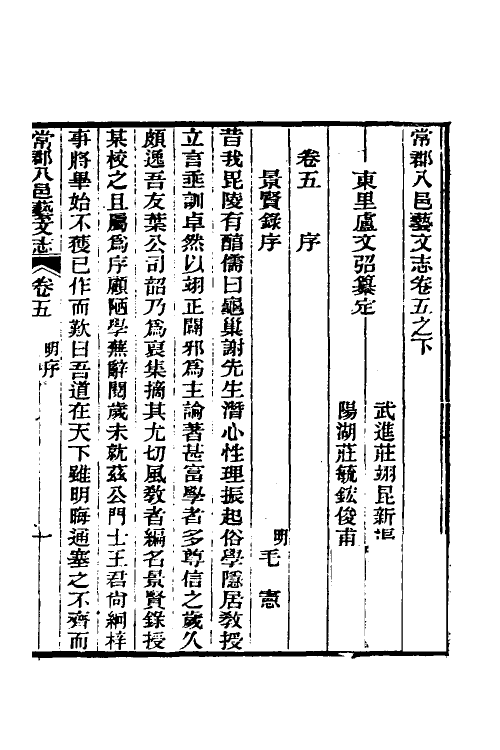 常郡八邑藝文志卷五之下
東里盧文弨纂定
武進莊翊昆新
陽湖莊毓鋐俊甫
卷五　序
景賢錄序
明毛憲
昔我毘陵有醇儒曰龜巢謝先生潛心性理振起俗學隱居敎授
立言垂訓卓然以翊正闢邪爲主論著甚富學者多尊信之歲久
頗逸吾友葉公司韶乃爲裒集摘其尤切風敎者編名景賢錄授
某校之且屬爲序顧陋學蕪辭閱歲未就茲公門士王君尙絅梓
事將畢始不獲已作而歎曰吾道在天下雖明晦通塞之不齊而
常郡八邑藝文志
卷五
明序